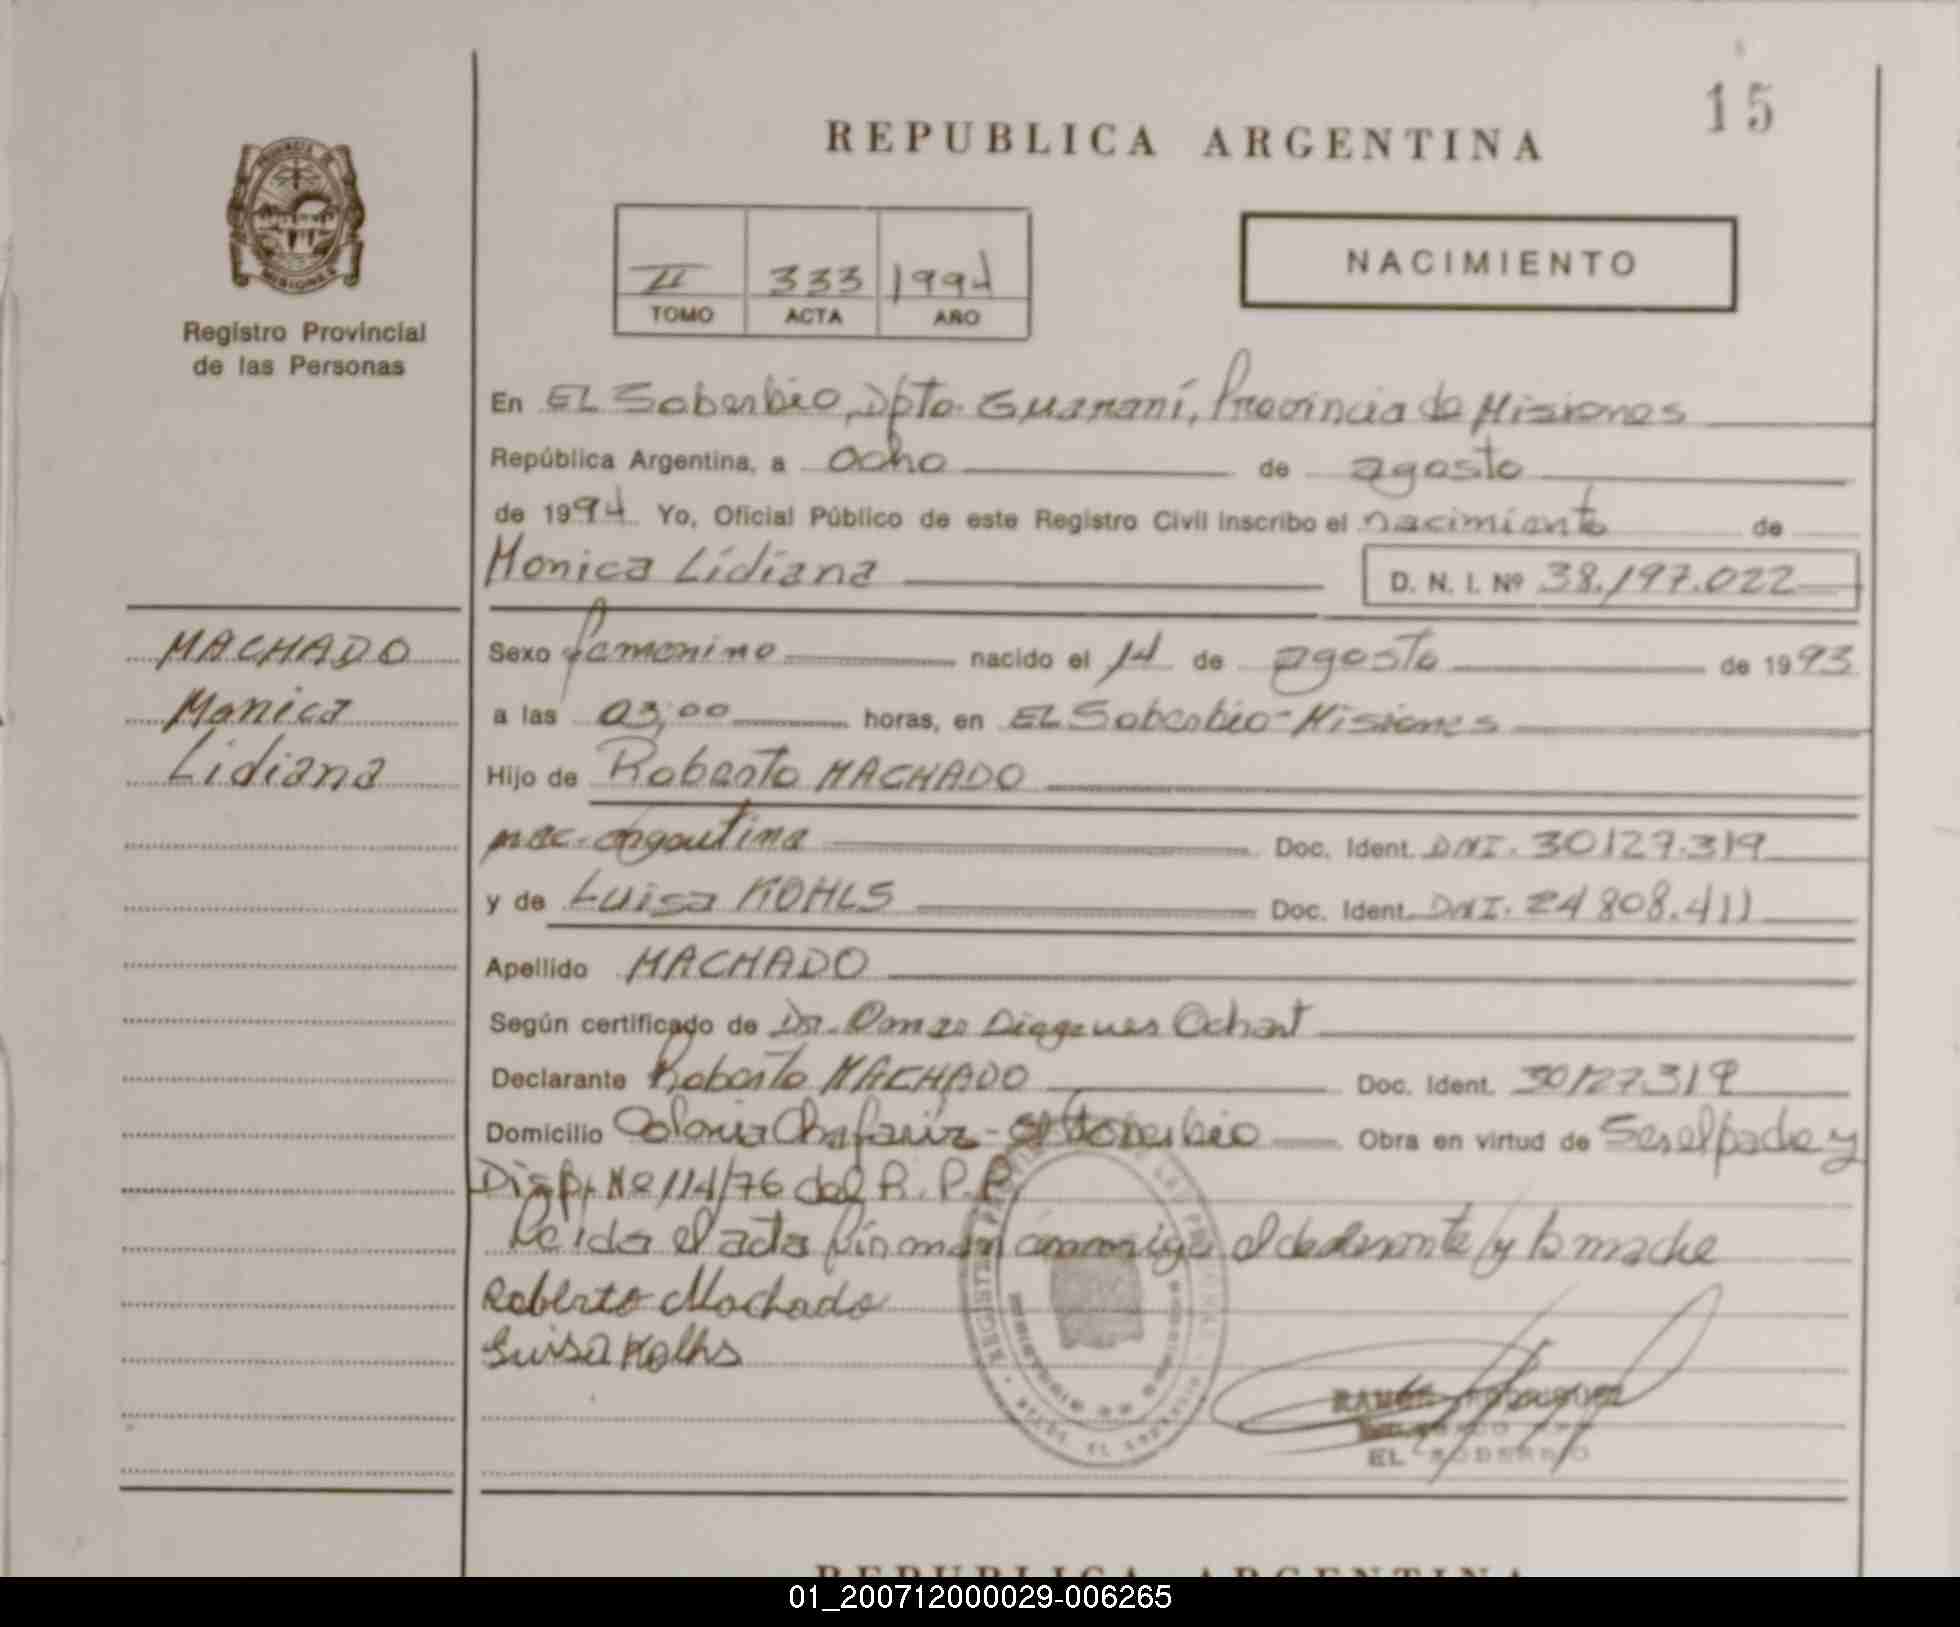 15
REPUBLICA ARGENTINA
NACIMIENTO
II 333 1994
TOMO ACTA AÑO
Registro Provincial
de las Personas
En EL Soberbio, Dpto. Guaraní, Provincia de Misiones
República Argentina, a ocho de agosto
de 1994 Yo, Oficial Público de este Registro Civil inscribo el nacimiento de
Monica Lidiana D. N. I. Nº 38.197.022
MACHADO
Monica
Lidiana
Sexo femenino nacido el 14 de agosto de 1993
a las 03,00 horas, en EL Soberbio-Misiones
Hijo de Roberto MACHADO
nac. argentina Doc. Ident. DNI. 30127.319
y de Luisa KOHLS Doc. Ident. DNI. 24808.411
Apellido MACHADO
Según certificado de Dr. Diogenes
Declarante Roberto MACHADO Doc. Ident. 30127319
Domicilio Colonia Chafariz - El Soberbio Obra en virtud de Ser el padre y
Disp. Nº 114/76 del R.P.P.
Leida el acta firman conmigo el declarante y la madre
Roberto Machado
Luisa Kolhs
EL SOBERBIO
REPUBLICA ARGENTINA
01_200712000029-006265